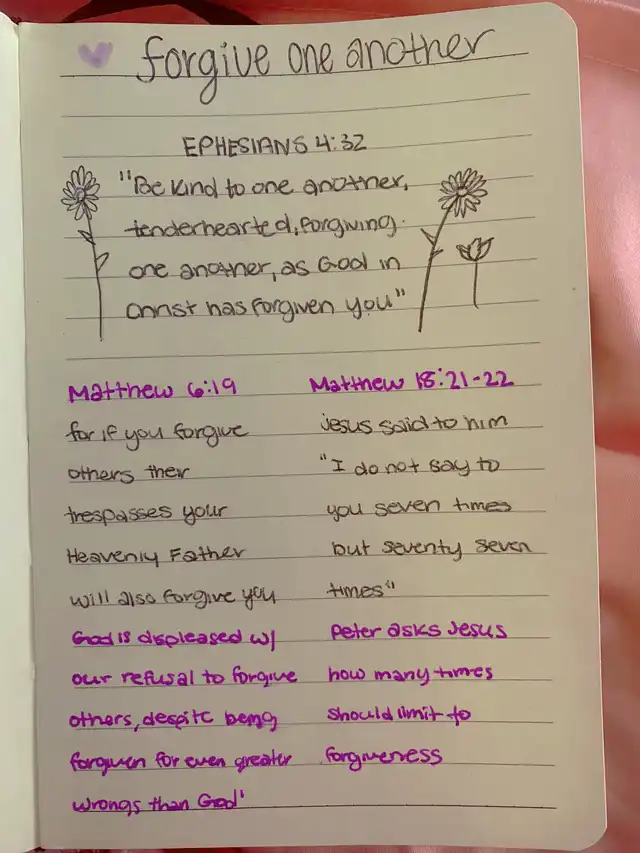 forgive one another
EPHESIANS 4:32
"Be kind to one another,
tenderhearted, forgiving
one another, as God in
christ has forgiven you"
Matthew 6:19
for if you forgive
others their
trespasses your
Heavenly Father
will also forgive you
God is displeased w/
our refusal to forgive
others, despite being
forgiven for even greater
wrongs than God'
Matthew 18:21-22
Jesus said to him
"I do not say to
you seven times
but seventy seven
times"
Peter asks Jesus
how many times
should limit to
forgiveness